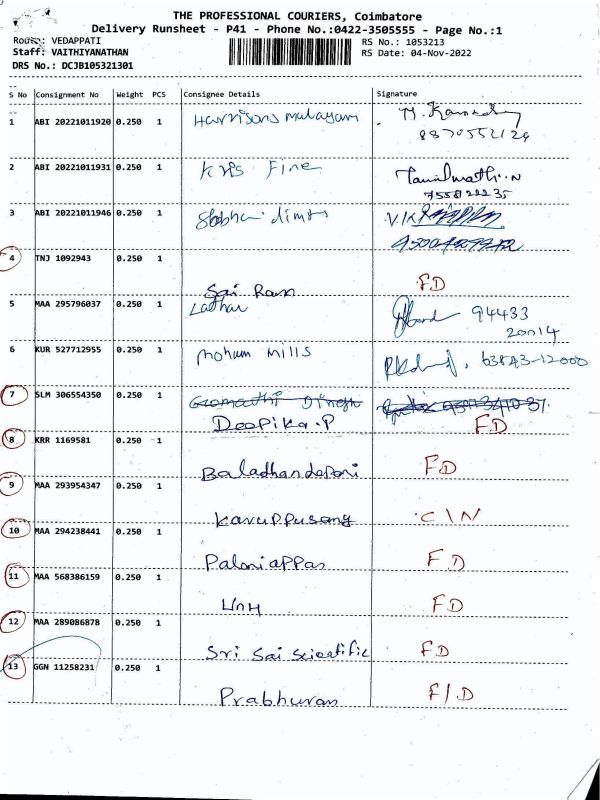 THE PROFESSIONAL COURIERS, Coimbatore
Delivery Runsheet - P41 - Phone No.:0422-3505555 - Page No.:1
Route: VEDAPPATI RS No.: 1053213
Staff: VAITHIYANATHAN RS Date: 04-Nov-2022
DRS No.: DCJB105321301
S No Consignment No Weight PCS Consignee Details Signature
1 ABI 20221011920 0.250 1 Harrisons malayam
8870552124
2 ABI 20221011931 0.250 1 Kris Fine Tamilmathi.N
3 ABI 20221011946 0.250 1
4 TNJ 1092943 0.250 1
Sai Ram F.D
5 MAA 295796037 0.250 1 94433
20014
6 KUR 527712955 0.250 1 mohum mills 63843-12000
7 SLM 306554350 0.250 1 Gomathi Dinesh
Deepika.P F.D
8 KRR 1169581 0.250 1
Baladhandapani F.D
9 MAA 293954347 0.250 1
Karuppusamy C\N
10 MAA 294238441 0.250 1
Palaniappan F.D
11 MAA 568386159 0.250 1
F.D
12 MAA 289086878 0.250 1
Sri Sai Scientific F.D
13 GGN 11258231 0.250 1
Prabhuram F/D